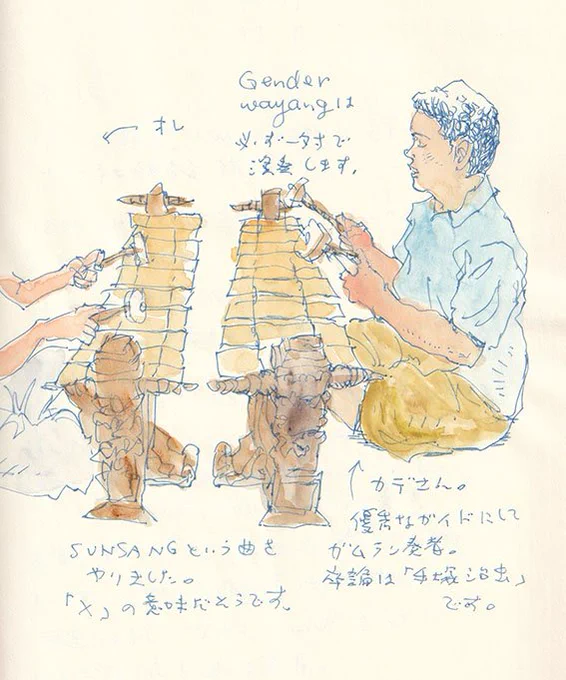 Gender
wayangは
必ず一対で
演奏します。
← オレ
↑ カデさん。
優秀なガイドにして
ガムラン奏者。
卒論は「手塚治虫」
です。
SUNSANGという曲を
やりました。
「×」の意味だそうです。